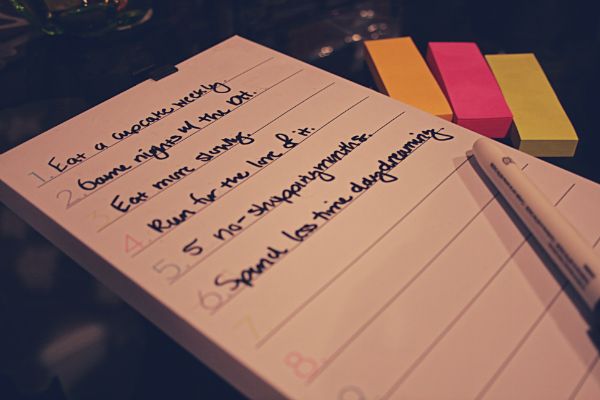 1. Eat a cupcake weekly.
2. Game nights w/ the
3. Eat more slowly.
4. Run for the love of it.
5. 5 no-shopping months.
6. Spend less time daydreaming.
7
8.
9